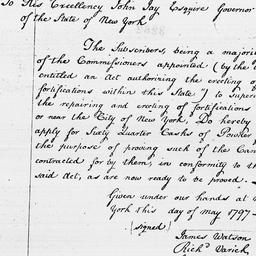 To His Excellency John Jay Esquire Governor
of the State of New York
The Subscribers, being a majori
of the Commissioners appointed (by the
entitled an Act authorizing the erecting o
fortifications within this State") to super
the repairing and erecting of fortifications
or near the City of New York, Do hereby
apply for Sixty Quarter Casks of Powder
the purpose of proving such of the Can
contracted for by them, in conformity to th
said Act, as are now ready to be proved.
Given under our hands at
York this day of May 1797—
(signed)
James Watson
Richd Varick